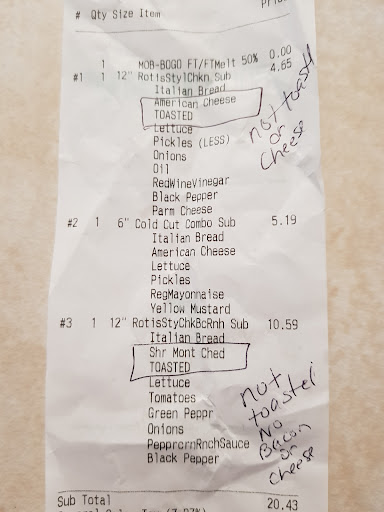 # Qty Size Item
1 MOB-BOGO FT/FTMelt 50% 0.00
#1 1 12" RotisStylChkn Sub 4.65
Italian Bread
American Cheese
TOASTED
Lettuce
Pickles (LESS)
Onions
Oil
RedWineVinegar
Black Pepper
Parm Cheese
not toast
or
cheese
#2 1 6" Cold Cut Combo Sub 5.19
Italian Bread
American Cheese
Lettuce
Pickles
RegMayonnaise
Yellow Mustard
#3 1 12" RotisStyChkBcRnh Sub 10.59
Italian Bread
Shr Mont Ched
TOASTED
Lettuce
Tomatoes
Green Peppr
Onions
PepprcrnRnchSauce
Black Pepper
not
toasted
No
Bacon
or
cheese
Sub Total 20.43